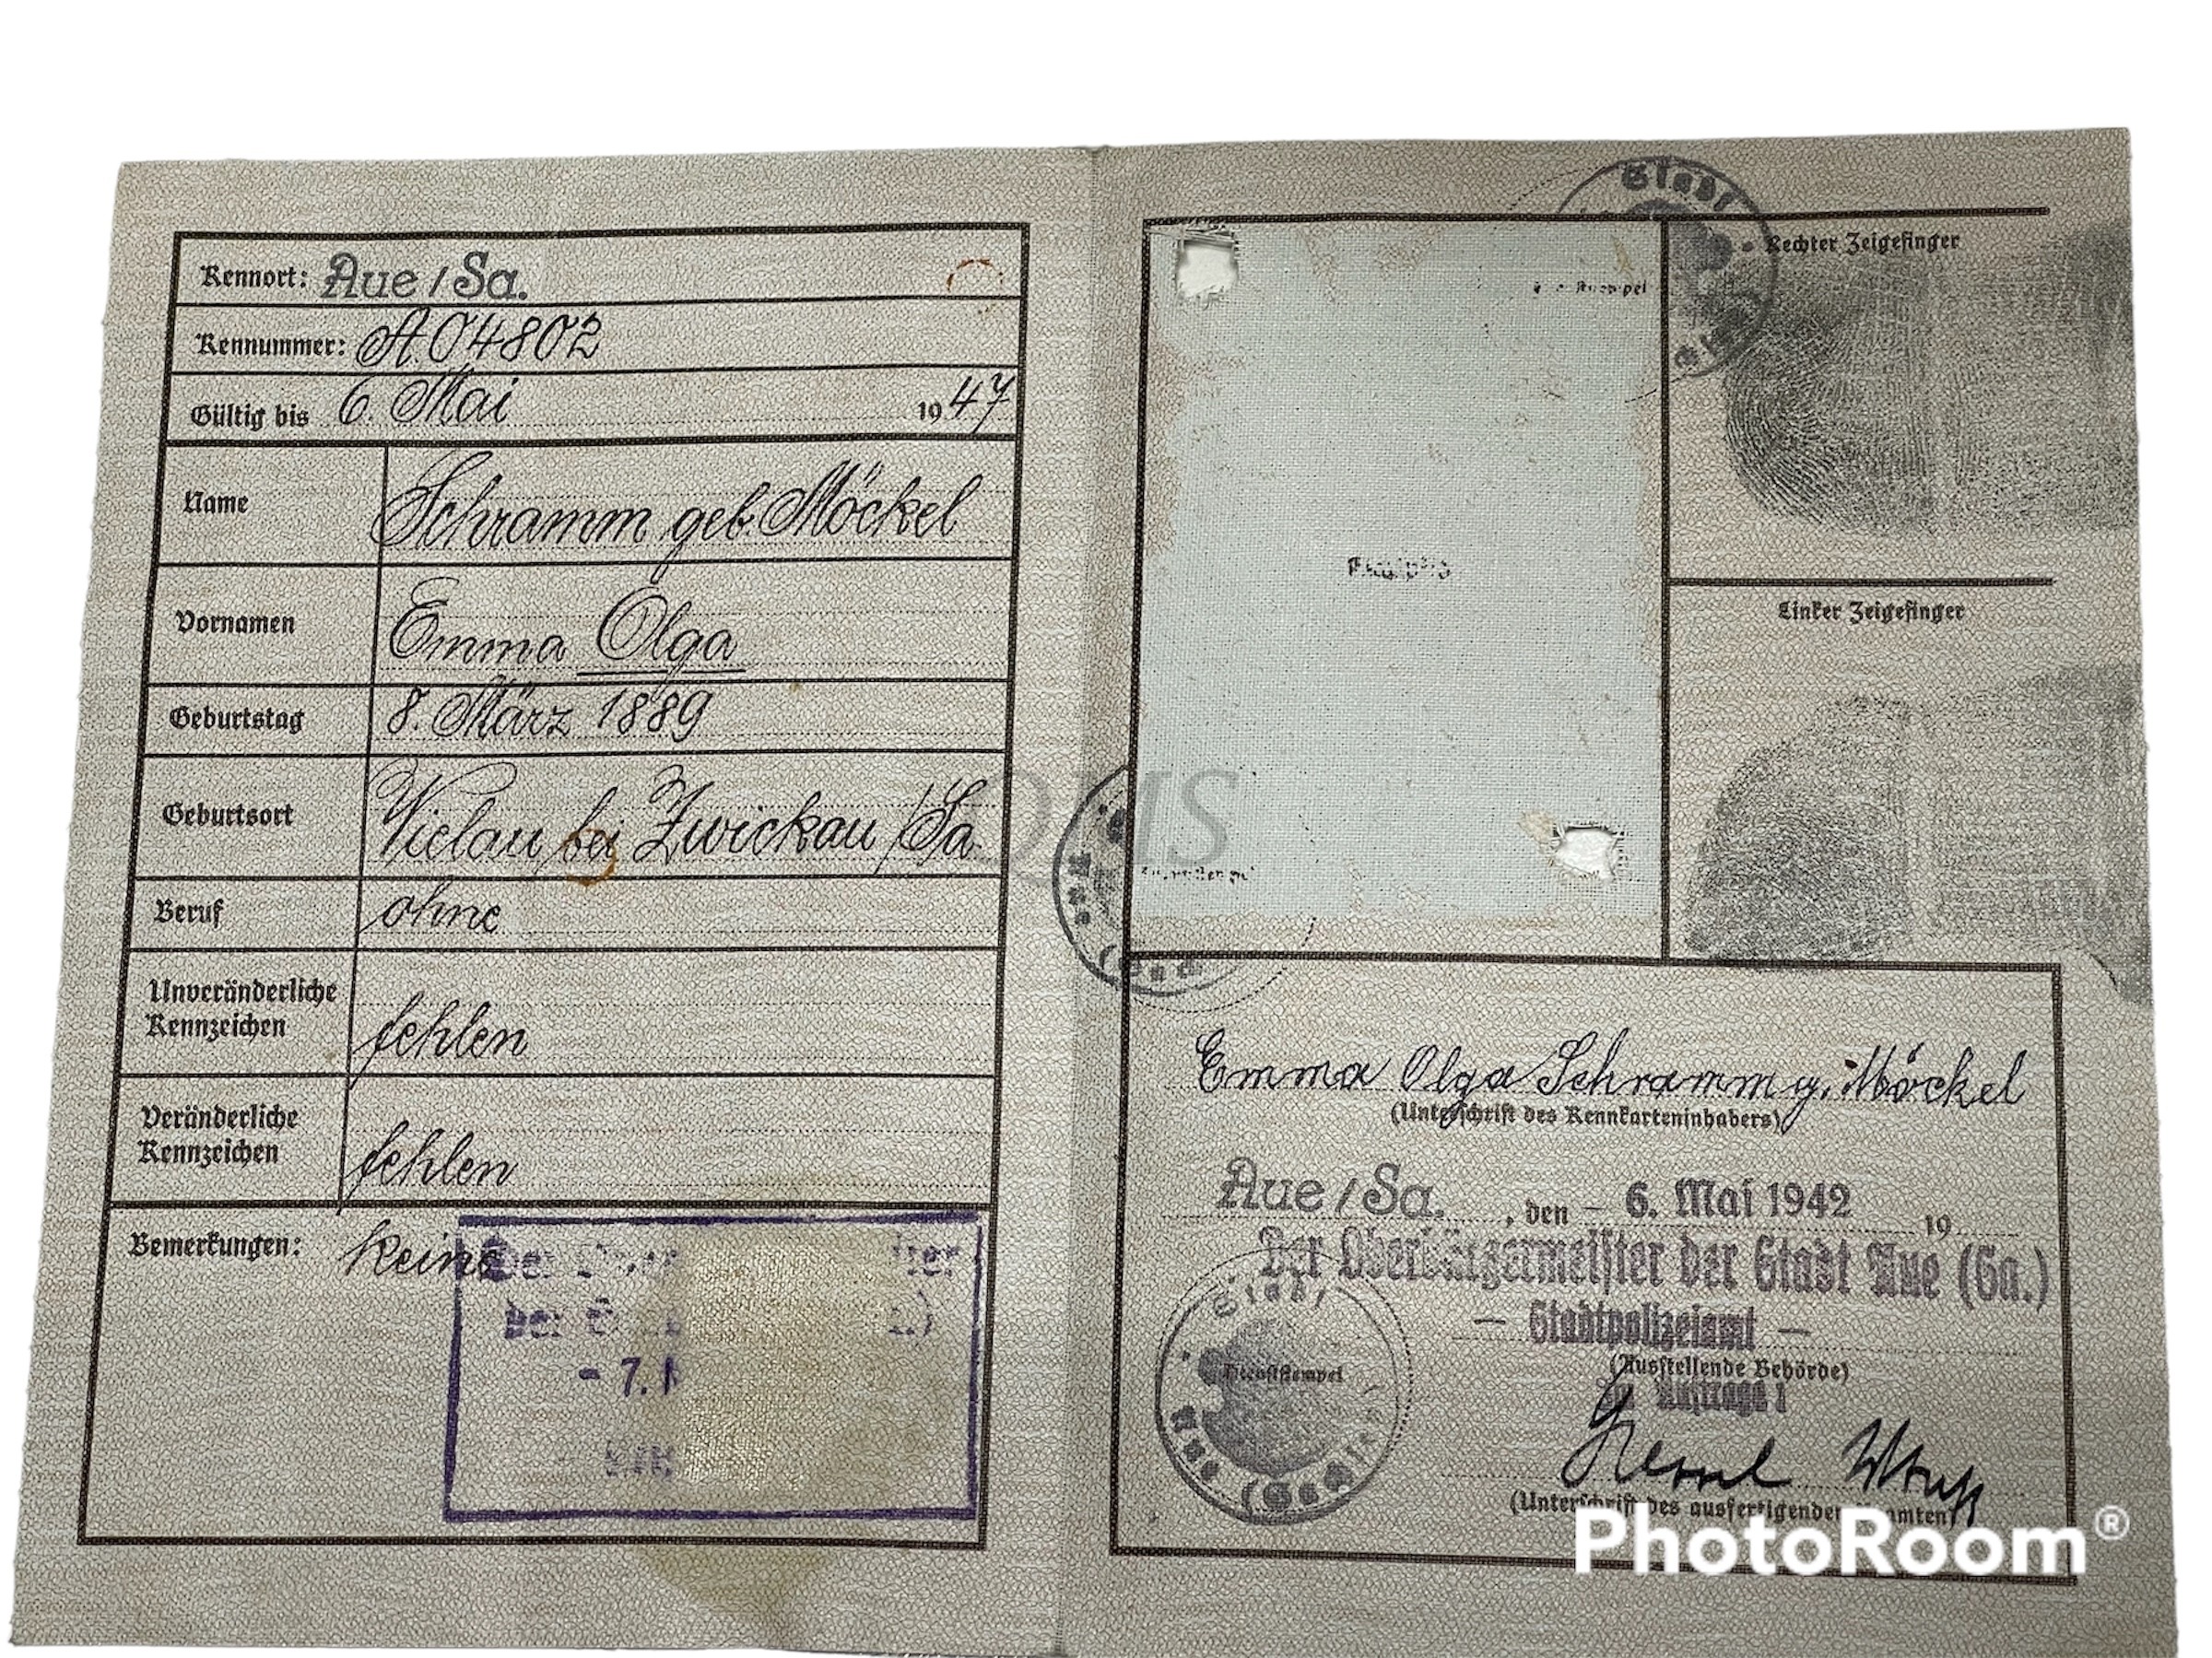 Kennort: Aue / Sa.
Kennummer: A 04802
Gültig bis 6. Mai 1947
Name Schramm geb. Möckel
Vornamen Emma Olga
Geburtstag 8. März 1889
Geburtsort Vielau bei Zwickau /Sa.
Beruf ohne
Unveränderliche
Kennzeichen fehlen
Veränderliche
Kennzeichen fehlen
Bemerkungen: keine
- 7.
Stadt
Rechter Zeigefinger
Linker Zeigefinger
Emma Olga Schramm g. Möckel
(Unterschrift des Kennkarteninhabers)
Aue / Sa. , den - 6. Mai 1942 19
Der Oberbürgermeister der Stadt Aue (Sa.)
— Stadtpolizeiamt —
(Ausstellende Behörde)
Im Auftrage:
Stadt
Dienststempel
Aue (Sachsen)
(Unterschrift des ausfertigenden Beamten)
PhotoRoom®